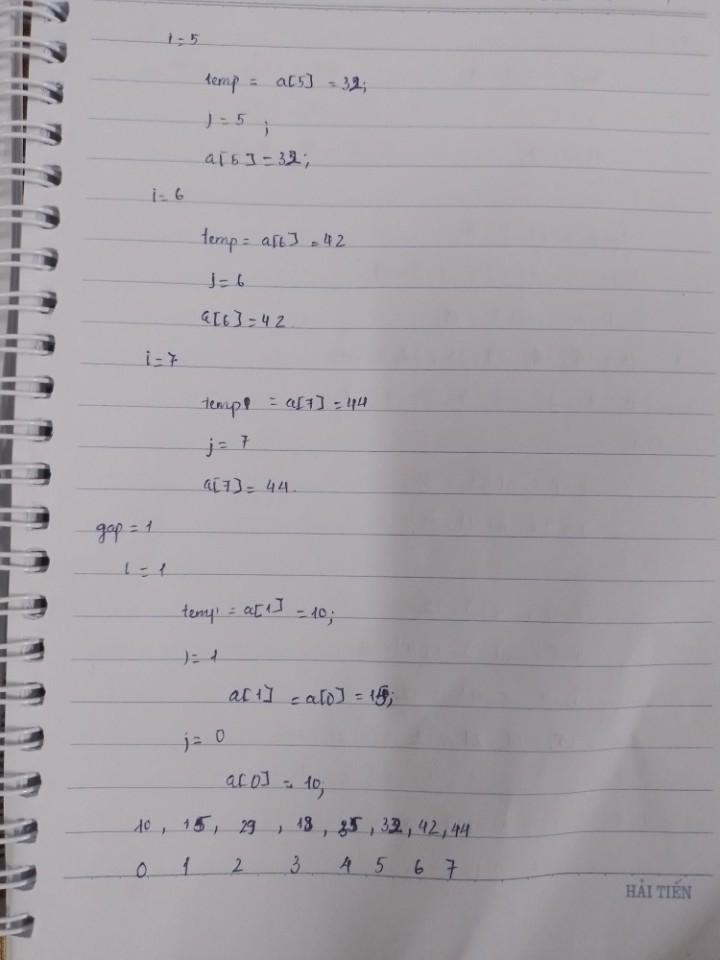 i = 5
temp = a[5] = 32;
j = 5 ;
a[5] = 32;
i = 6
temp = a[6] = 42
j = 6
a[6] = 42.
i = 7
temp = a[7] = 44
j = 7
a[7] = 44.
gap = 1
i = 1
temp = a[1] = 10;
j = 1
a[1] = a[0] = 15;
j = 0
a[0] = 10;
10 , 15 , 29 , 18 , 35 , 32 , 42 , 44
0 1 2 3 4 5 6 7
HẢI TIẾN